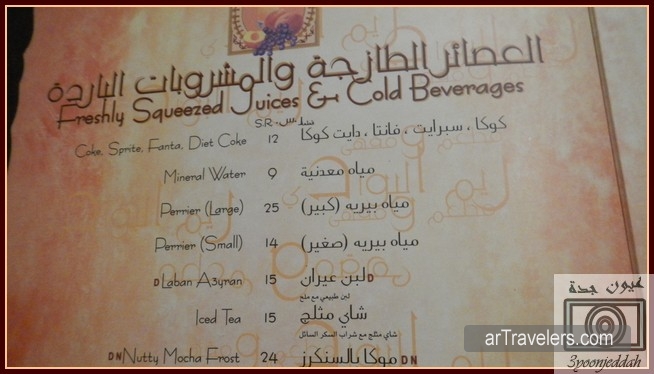 العصائر الطازجة والمشروبات الباردة
Freshly Squeezed Juices & Cold Beverages
S.R. س.ر.
Coke, Sprite, Fanta, Diet Coke 12 كوكا ، سبرايت ، فانتا ، دايت كوكا
Mineral Water 9 مياه معدنية
Perrier (Large) 25 مياه بيريه (كبير)
Perrier (Small) 14 مياه بيريه (صغير)
D Laban A3yran 15 لبن عيران D
لبن طبيعي مع ملح
Iced Tea 15 شاي مثلج
شاي مثلج مع شراب السكر السائل
DN Nutty Mocha Frost 24 موكا بالسنكرز DN
عيون جدة
arTravelers.com
3yoonjeddah